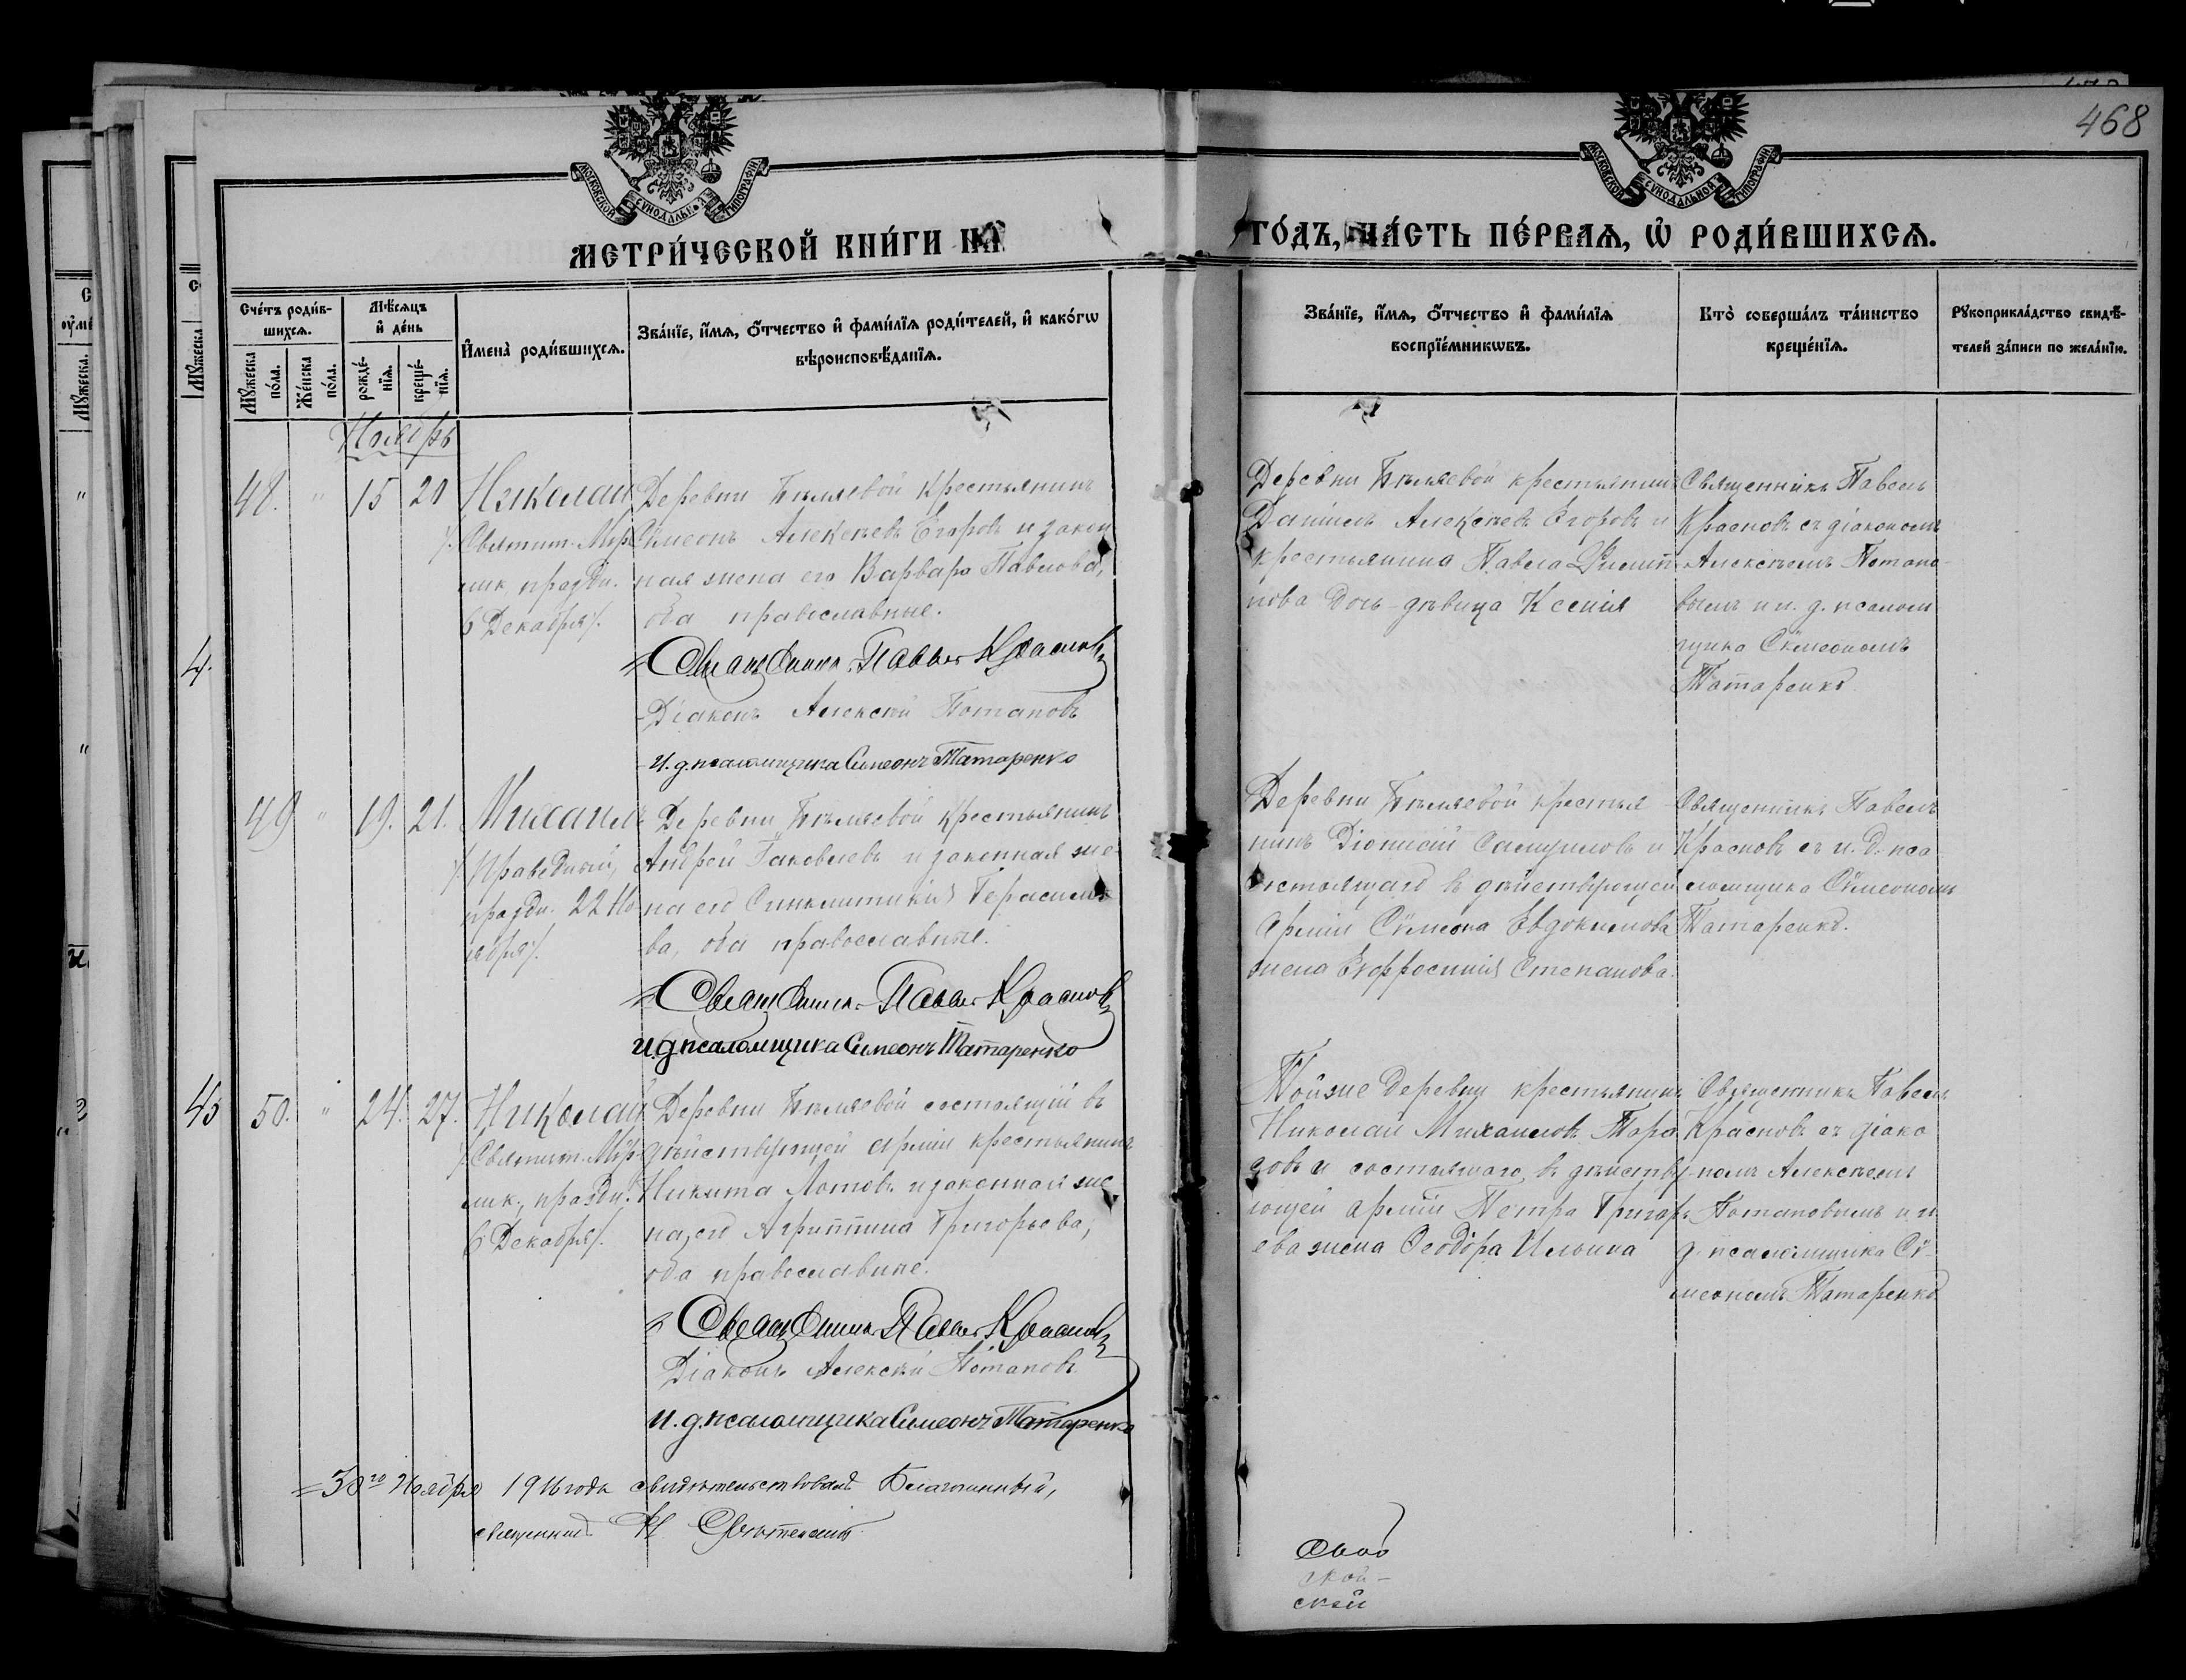 468
МОСКОВСКОЙ СУНОДАЛЬНОЙ ТИПОГРАФІИ
МОСКОВСКОЙ СУНОДАЛЬНОЙ ТИПОГРАФІИ
МЕТРИ́ЧЕСКОЙ КНИ́ГИ НА
ГО́ДЪ, ЧА́СТЬ ПЕ́РВАѦ, Ѡ РОДИ́ВШИХСѦ.
Сче́тъ роди́в-
шихсѧ.
Мꙋ́жеска по́ла.
Же́нска по́ла.
Мѣ́сѧцъ
и҆ де́нь
рожде́-
нїѧ.
креще́-
нїѧ.
И҆мена̀ роди́вшихсѧ.
Зва́нїе, и҆́мѧ, ѻ҆́тчество и҆ фами́лїѧ роди́телей, и҆ како́гѡ
вѣроисповѣ́данїѧ.
Зва́нїе, и҆́мѧ, ѻ҆́тчество и҆ фами́лїѧ
воспрїе́мникѡвъ.
Кто̀ соверша́лъ та́инство
креще́нїѧ.
Рꙋкоприкла́дство свидѣ́-
телей за́писи по жела́нїю.
Ноябрь
48. " 15 21 Николай
/. Святит. Мѵр
лик. праздн.
6 Декабря /.
Деревни Бѣляевой крестьянинъ
Сѵмеонъ Алексѣевъ Егоровъ и закон
ная жена его Варвара Павлова,
оба православные.
Священникъ Павелъ Красновъ
Діаконъ Алексій Потаповъ
И. д. псаломщика Симеонъ Татаренко
Деревни Бѣляевой крестьянинъ
Даніилъ Алексѣевъ Егоровъ и
крестьянина Павла Филип
пова дочь - дѣвица Ксенія
Священникъ Павелъ
Красновъ съ діакономъ
Алексѣемъ Потапо-
вымъ и и. д. псалом
щика Сѵмеономъ
Татаренко
49 " 19. 21. Михаилъ
/. Праведный,
праздн. 22 Но
ября /.
Деревни Бѣляевой крестьянинъ
Андрей Іаковлевъ и законная же-
на его Синклитикія Герасимо
ва, оба православные.
Священникъ Павелъ Красновъ
И. д. псаломщика Симеонъ Татаренко
Деревни Бѣляевой крестья-
нинъ Діонисій Самуиловъ и
состоящаго въ дѣйствующей
арміи Сѵмеона Евдокимова
жена Евфросинія Степанова.
Священникъ Павелъ
Красновъ съ и. д. пса
ломщика Сѵмеономъ
Татаренко.
50. " 24. 27. Николай
/. Святит. Мѵр
лик., праздн.
6 Декабря /.
Деревни Бѣляевой состоящій въ
дѣйствующей арміи крестьянинъ
Никита Лотовъ и законная же
на его Агриппина Григорьева,
оба православные.
Священникъ Павелъ Красновъ
Діаконъ Алексій Потаповъ
И. д. псаломщика Симеонъ Татаренко
Той же деревни крестьянинъ
Николай Михаиловъ Тара
совъ и состоящаго въ дѣйству
ющей арміи Петра Григорь
ева жена Ѳеодора Ильина
Священникъ Павелъ
Красновъ съ діако
номъ Алексѣемъ
Потаповымъ и и.
д. псаломщика Сѵ-
меономъ Татаренко
30го Ноября 1916 года свидѣтельствовалъ Благочинный,
священникъ
ской-